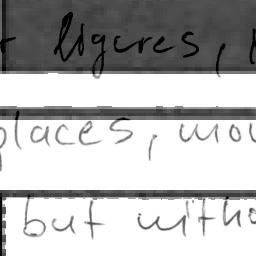 ligures,
places, mou
but witho